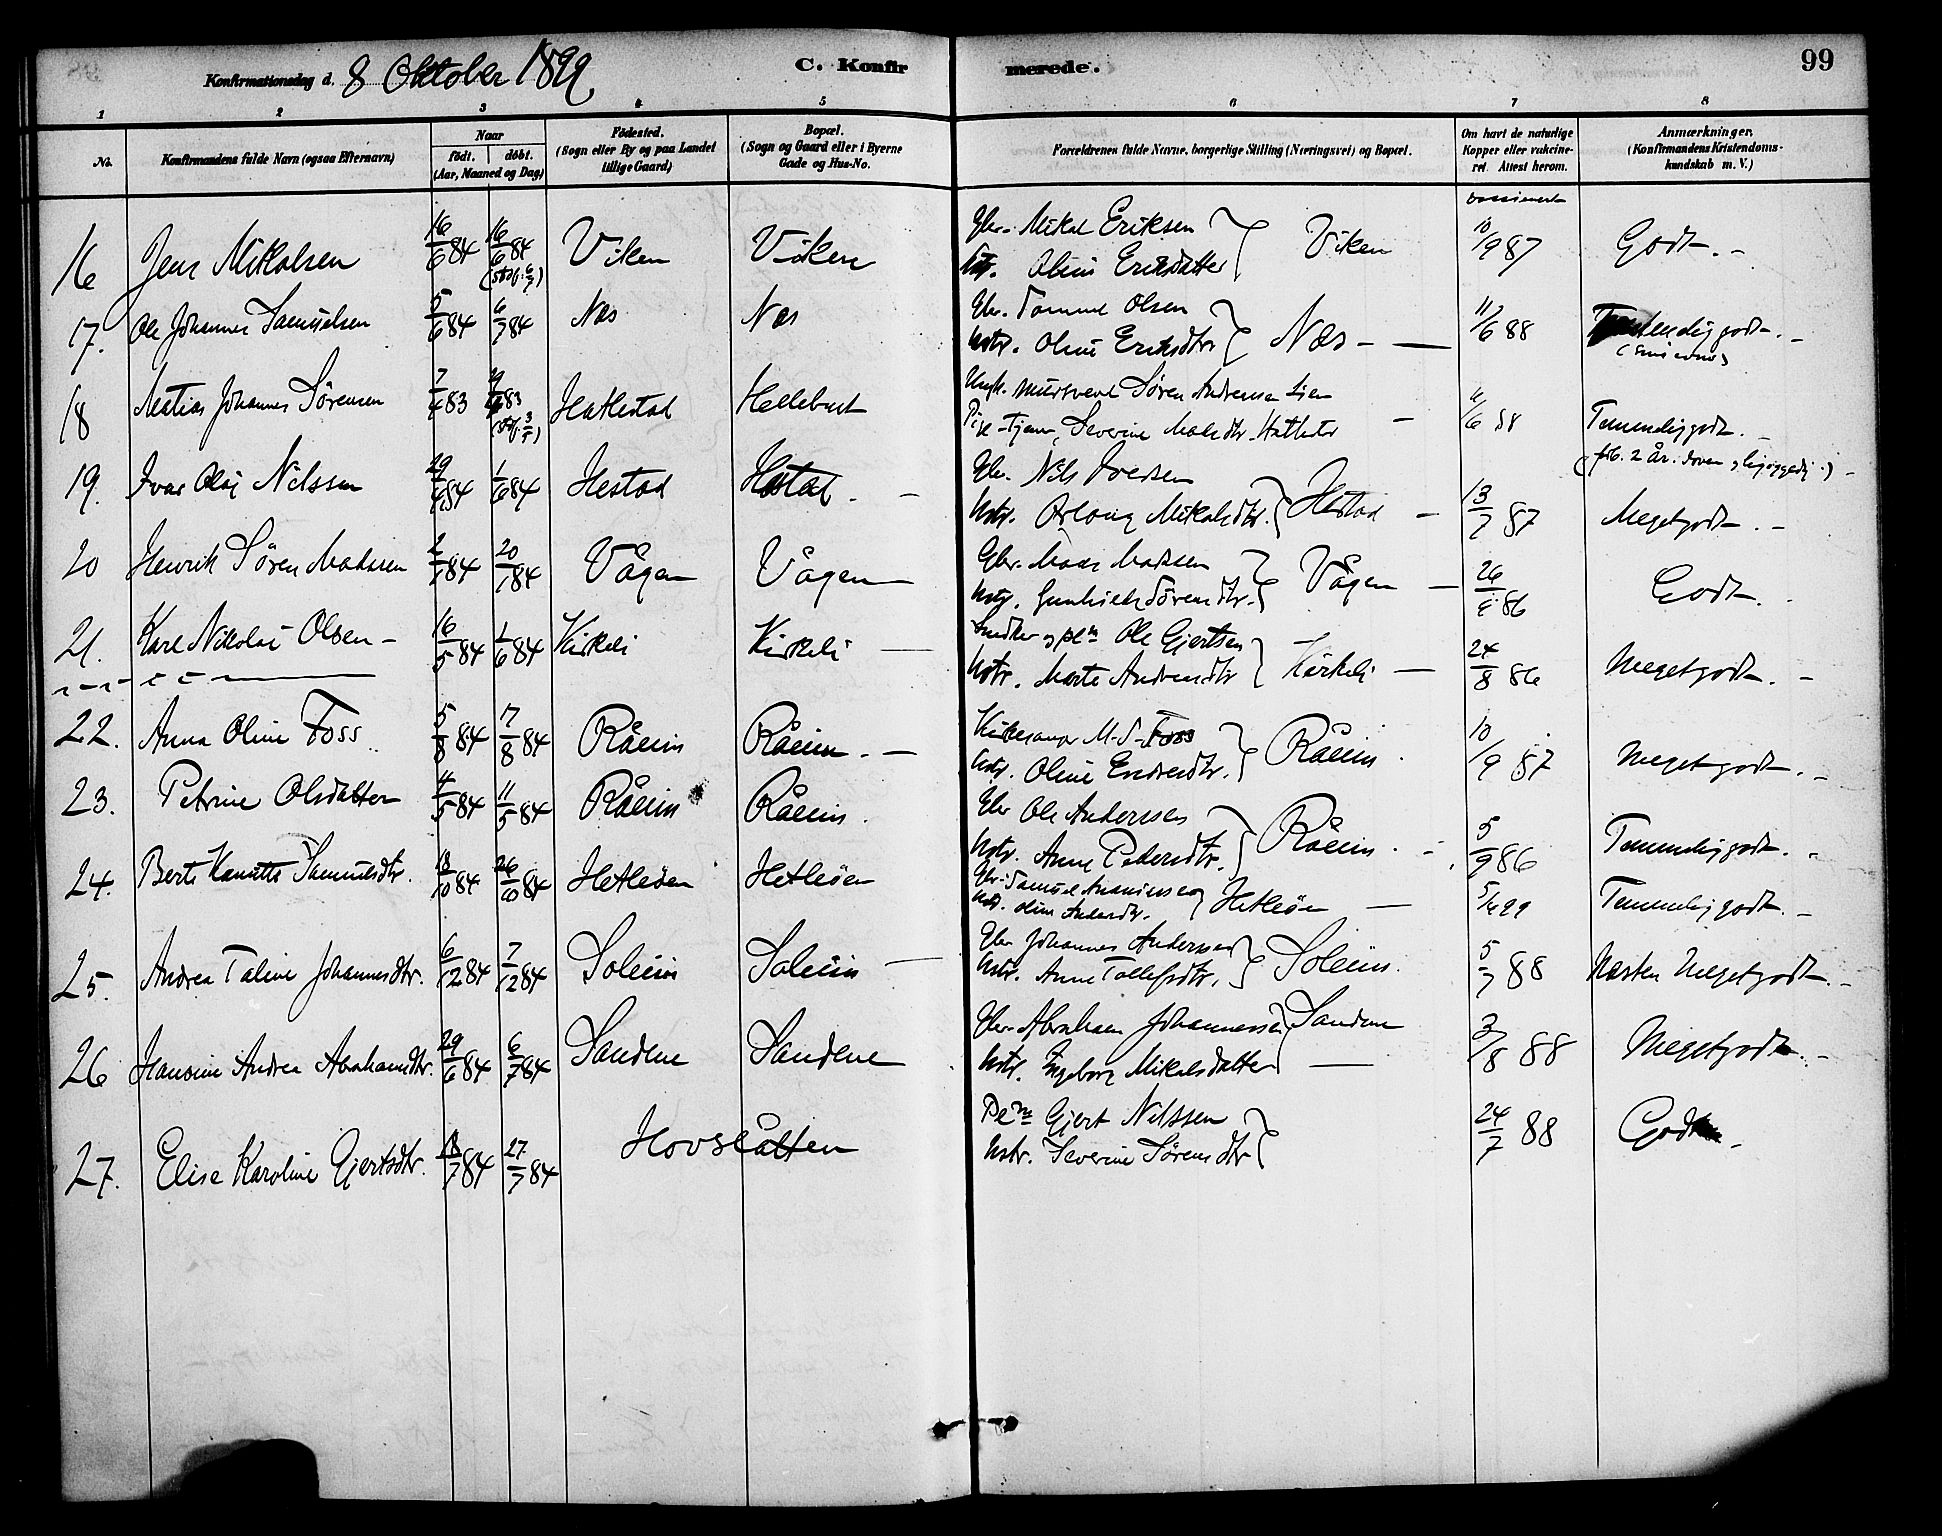 Konfirmationsdag d. 8 Oktober 1899
C. Konfirmerede.
99
1 2 3 4 5 6 7 8
No.
Konfirmandens fulde Navn (ogsaa Efternavn)
Naar
født. døbt.
(Aar, Maaned og Dag)
Fødested.
(Sogn eller By og paa Landet
tillige Gaard)
Bopæl.
(Sogn og Gaard eller i Byerne
Gade og Hus-No.
Forældrenes fulde Navne, borgerlige Stilling (Næringsvei) og Bopæl.
Om havt de naturlige
Kopper eller vakcine-
ret. Attest herom.
Anmærkninger.
(Konfirmandens Kristendoms-
kundskab m. V.)
16 Jens Mikalsen 16/6 84 16/6 84 Viken Viken Mikal Eriksen
Eriksdatter } Viken 10/9 87 Godt. -
17. Ole Johannes Samuelsen 5/6 84 6/7 84 Næs Næs Gbr. Samuel Olsen
Hstr. Oline Eriksdtr } Næs - 11/6 88 Temmelig godt. -
18 Matias Johannes Sørensen 7/4 83 Hatlestad Hellebust Søren Andersen Lien
Pige - Severine 11/6 88 Temmelig godt. -
19. Ivar Olai Nilssen 29/4 84 1/6 84 Hestad Hestad. - Gbr. Nils Iversen
Hstr. Mikalsdtr. } Hestad - 13/7 87 Meget godt. -
20 Henrik Søren Madssen 2/7 84 20/7 84 Vågen Vågen Gbr. Mads Madssen
Hstr. Gunhild Sørensdtr. } Vågen - 26/8 86 Godt. -
21. Karl Nikolai Olsen - 16/5 84 1/6 84 Kirkeli Kirkeli Snedker og plm Ole Gjertsen
Hstr. Marte Andreasdtr } Kirkeli - 24/8 86 Meget godt. -
22. Anna Oline Foss 5/8 84 17/8 84 Råeim Råeim. - Kirkesanger M. S. Foss
Hstr. Oline Endresdtr. } Råeim. 10/9 87 Meget godt. -
23. Petrine Olsdatter 4/5 84 11/5 84 Råeim Råeim. Gbr Ole Anderssen
Hstr. Anne Pedersdtr. } Råeim. - 5/9 86 Temmelig godt. -
24. Berte Kanutte Samuelsdtr. 18/10 84 26/10 84 Hetleøen Hetleøen Gbr. Samuel
Hstr. Oline Andersdtr. } Hetleøen 5/4 99 Temmelig godt. -
25. Andrea Taline Johannesdtr. 6/12 84 7/12 84 Soleim Soleim Gbr Johannes Anderssen
Hstr. Anne Tollefsdtr. } Soleim. 5/7 88 Næsten Meget godt. -
26 Hansine Andrea Abrahamsdtr. 29/6 84 6/7 84 Sandene Sandene Gbr. Abraham Johannessen
Hstr. Ingeborg Mikalsdatter } Sandene 3/8 88 Meget godt. -
27. Elise Karoline Gjertsdtr. 18/7 84 27/7 84 Hovslåtten Plm Gjert Nilssen
Hstr. Severine Sørensdtr } 24/7 88 Godt -